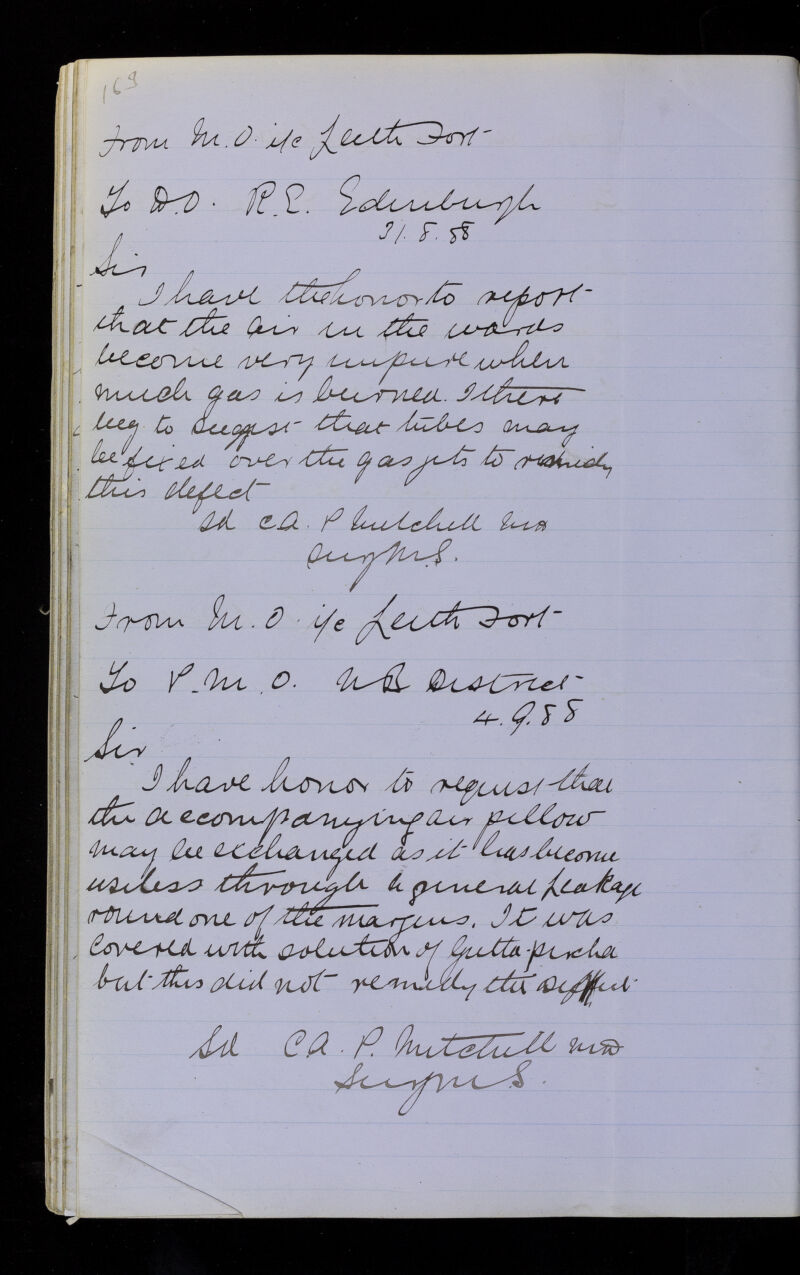 168
From M.O. i/c Leith Fort
To D.O. R.E. Edinburgh
31.8.88
Sir
I have the honor to report
that the air in the wards
become very impure when
much gas is burned. I there
beg to suggest that tubes may
be fixed over the gas jets to remedy
this defect
Sd C.A. P. Mitchell MD
Surg M.S.
From M.O. i/c Leith Fort
To P.M.O. N B District
4.9.88
Sir
I have honor to request that
the accompanying air pillow
may be exchanged as it has become
useless through a general leakage
round one of the margins. It was
covered with solution of Gutta-percha
but this did not remedy the defect
Sd C A. P. Mitchell MD
Surg M S.